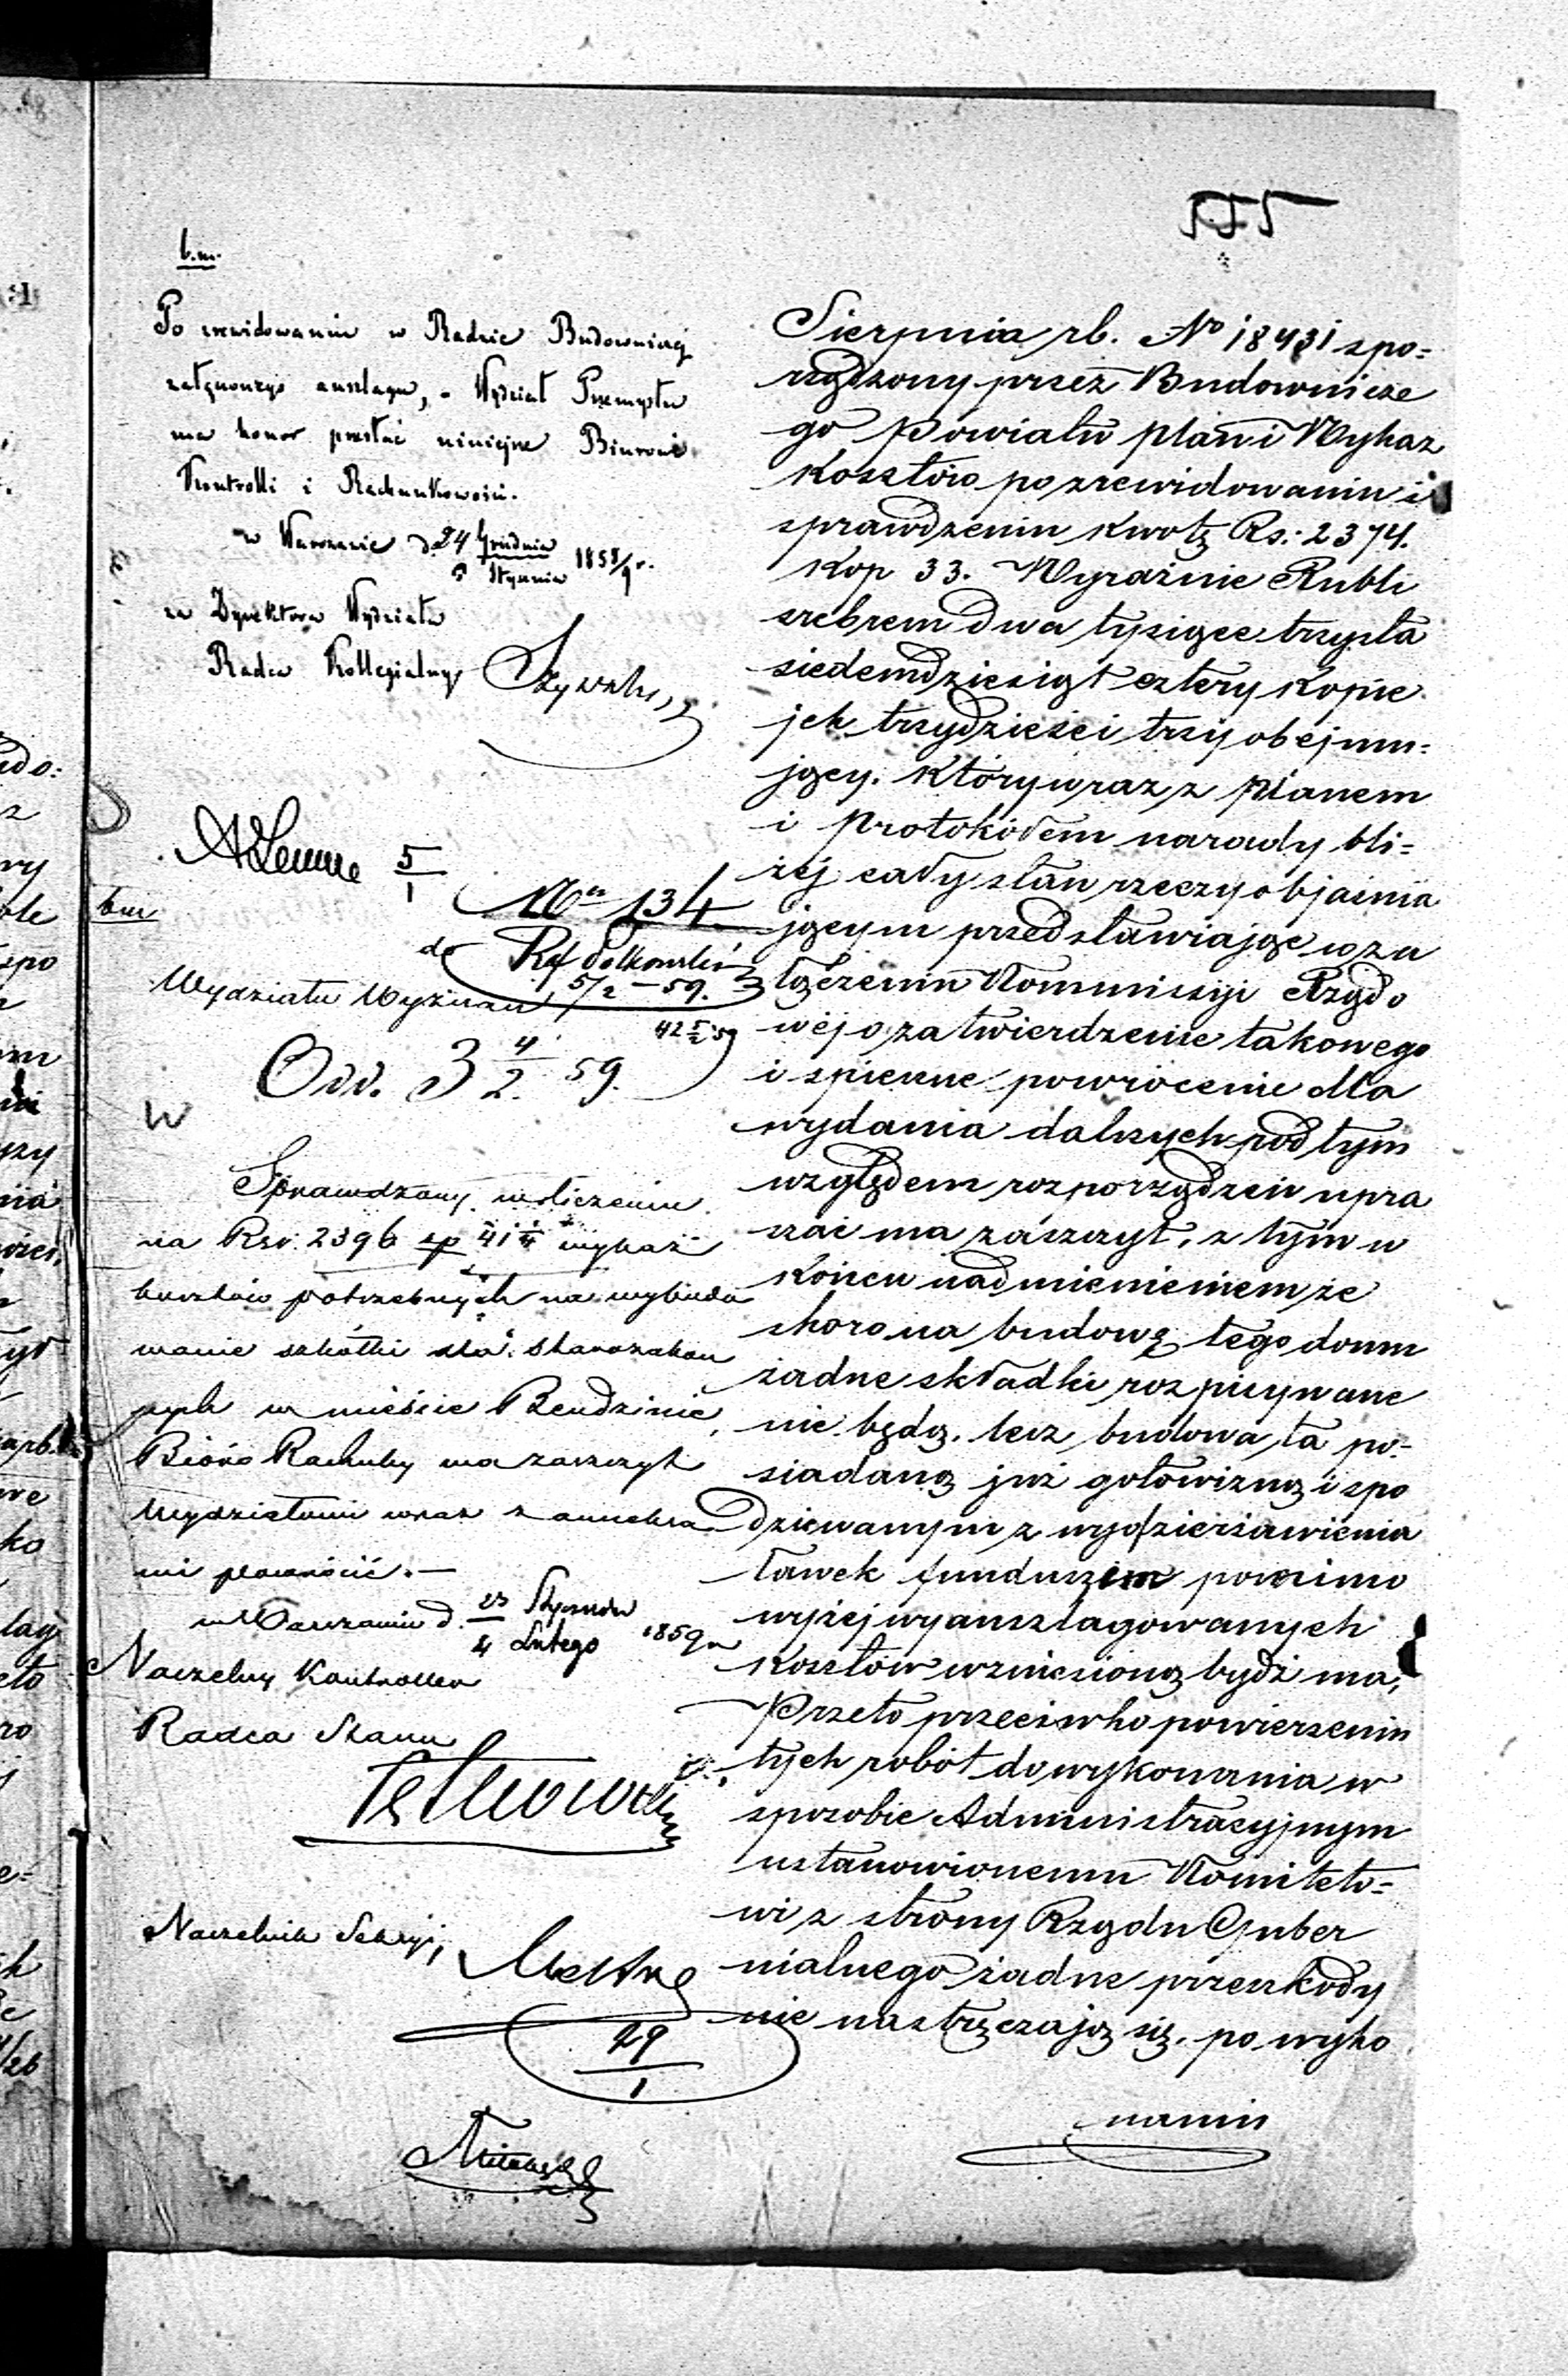 555
b.m.
Po zrewidowaniu w Radzie Budowniczej
załączonego anszlagu, - Wydział Przemysłu
ma honor przesłać niniejsze Biurowi
Kontrolli i Rachunkowości.
w Warszawie d. 24 Grudnia / 5 Stycznia 1858/9 r.
za Dyrektora Wydziału
Radca Kollegialny
5/1
bm
No 134
do
Wydziału Wyznań
5/2 - 59.
42 5/2 59
3 4/2 59.
Sprawdzony w liczeniu
na Rsr. 2396 kp 41 1/4 wykaz
kosztów potrzebnych na wybudo
wanie szkółki dla Starozakon
nych w mieście Bendzinie,
Bióro Rachuby ma zaszczyt
Wydziałowi wraz z annexa
mi powrócić. —
w Warszawie d. 23 Stycznia / 4 Lutego 1859 r
Naczelny Kontroller
Radca Stanu
Naczelnik Sekcyi,
29/1
Sierpnia rb. No 18431 spo=
rządzony przez Budownicze
go Powiatu plan i Wykaz
kosztów po zrewidowaniu i
sprawdzeniu kwotę Rs: 2374.
kop 33. Wyraźnie Rubli
srebrem dwa tysiące trzysta
siedemdziesiąt cztery kopie
jek trzydzieści trzy obejmu=
jący. który wraz z planem
i protokółem narady bli=
żej cały stan rzeczy objaśnia
jącym przedstawiając w za
łączeniu Kommissyi Rządo
wéj o zatwierdzenie takowego
i spieszne powrócenie dla
wydania dalszych pod tym
względem rozporządzeń upra
szać ma zaszczyt, z tym w
końcu nadmienieniem że
skoro na budowę tego domu
żadne składki rozpisywane
nie będą. lecz budowa ta po=
siadaną już gotowizną i spo
dziewanym z wydzierżawienia
ławek funduszem pomimo
wyżej wyanszlagowanych
kosztów wzniesioną bydź ma,
Przeto przeciwko powierzeniu
tych robót do wykonania w
sposobie Administracyjnym
ustanowionemu Komiteto=
wi z strony Rządu Guber
nialnego żadne przeszkody
nie nastręczają się. po wyko
naniu